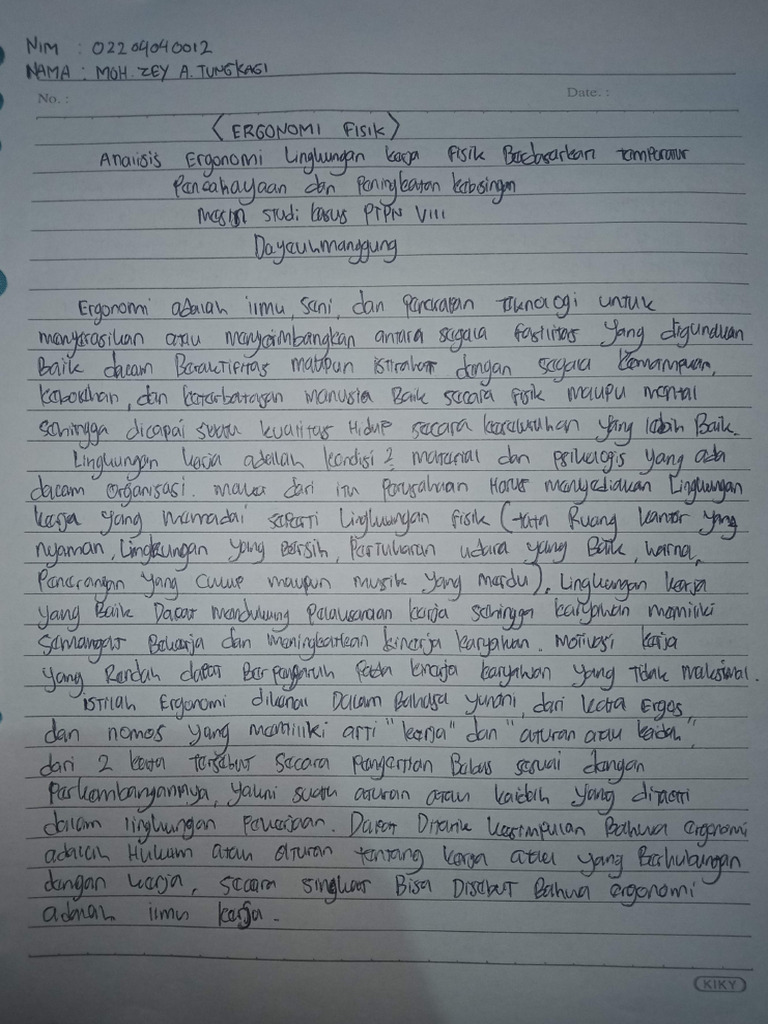 NIM : 02204040012
NAMA : MOH. ZEY A. TUNGKAGI
No. :
Date. :
(ERGONOMI FISIK)
Analisis Ergonomi Lingkungan kerja fisik Berdasarkan temperatur
Pencahayaan dan Peningkatan kebisingan
mesin studi kasus PTPN VIII
Dayeuhmanggung
Ergonomi adalah ilmu, seni, dan penerapan teknologi untuk
menyerasikan atau menyeimbangkan antara segala fasilitas yang digunakan
Baik dalam Beraktifitas maupun istirahat dengan segala kemampuan,
kebolehan, dan keterbatasan manusia Baik secara fisik maupu mental
sehingga dicapai suatu kualitas Hidup secara keseluruhan yang lebih Baik.
Lingkungan kerja adalah kondisi 2 material dan psikologis yang ada
dalam organisasi. maka dari itu perusahaan Harus menyediakan Lingkungan
kerja yang memadai seperti Lingkungan fisik (tata Ruang kantor yang
nyaman, Lingkungan yang Bersih, Pertukaran udara yang Baik, warna,
Penerangan yang cukup maupun musik yang merdu), Lingkungan kerja
yang Baik Dapat mendukung pelaksanaan kerja sehingga karyawan memiliki
semangat Bekerja dan meningkatkan kinerja karyawan. Motivasi kerja
yang Rendah dapat Berpengaruh pada kinerja karyawan yang Tidak maksimal.
istilah Ergonomi dikenal Dalam Bahasa yunani, dari kata Ergos,
dan nomos yang memiliki arti "kerja" dan "aturan atau kaidah",
dari 2 kata tersebut secara Pengertian Bebas sesuai dengan
Perkembangannya, yakni suatu aturan atau kaidah yang ditaati
dalam lingkungan pekerjaan. Dapat Ditarik kesimpulan Bahwa ergonomi
adalah Hukum atau aturan tentang kerja atau yang Berhubungan
dengan kerja, secara singkat Bisa Disebut Bahwa ergonomi
adalah ilmu kerja.
KIKY